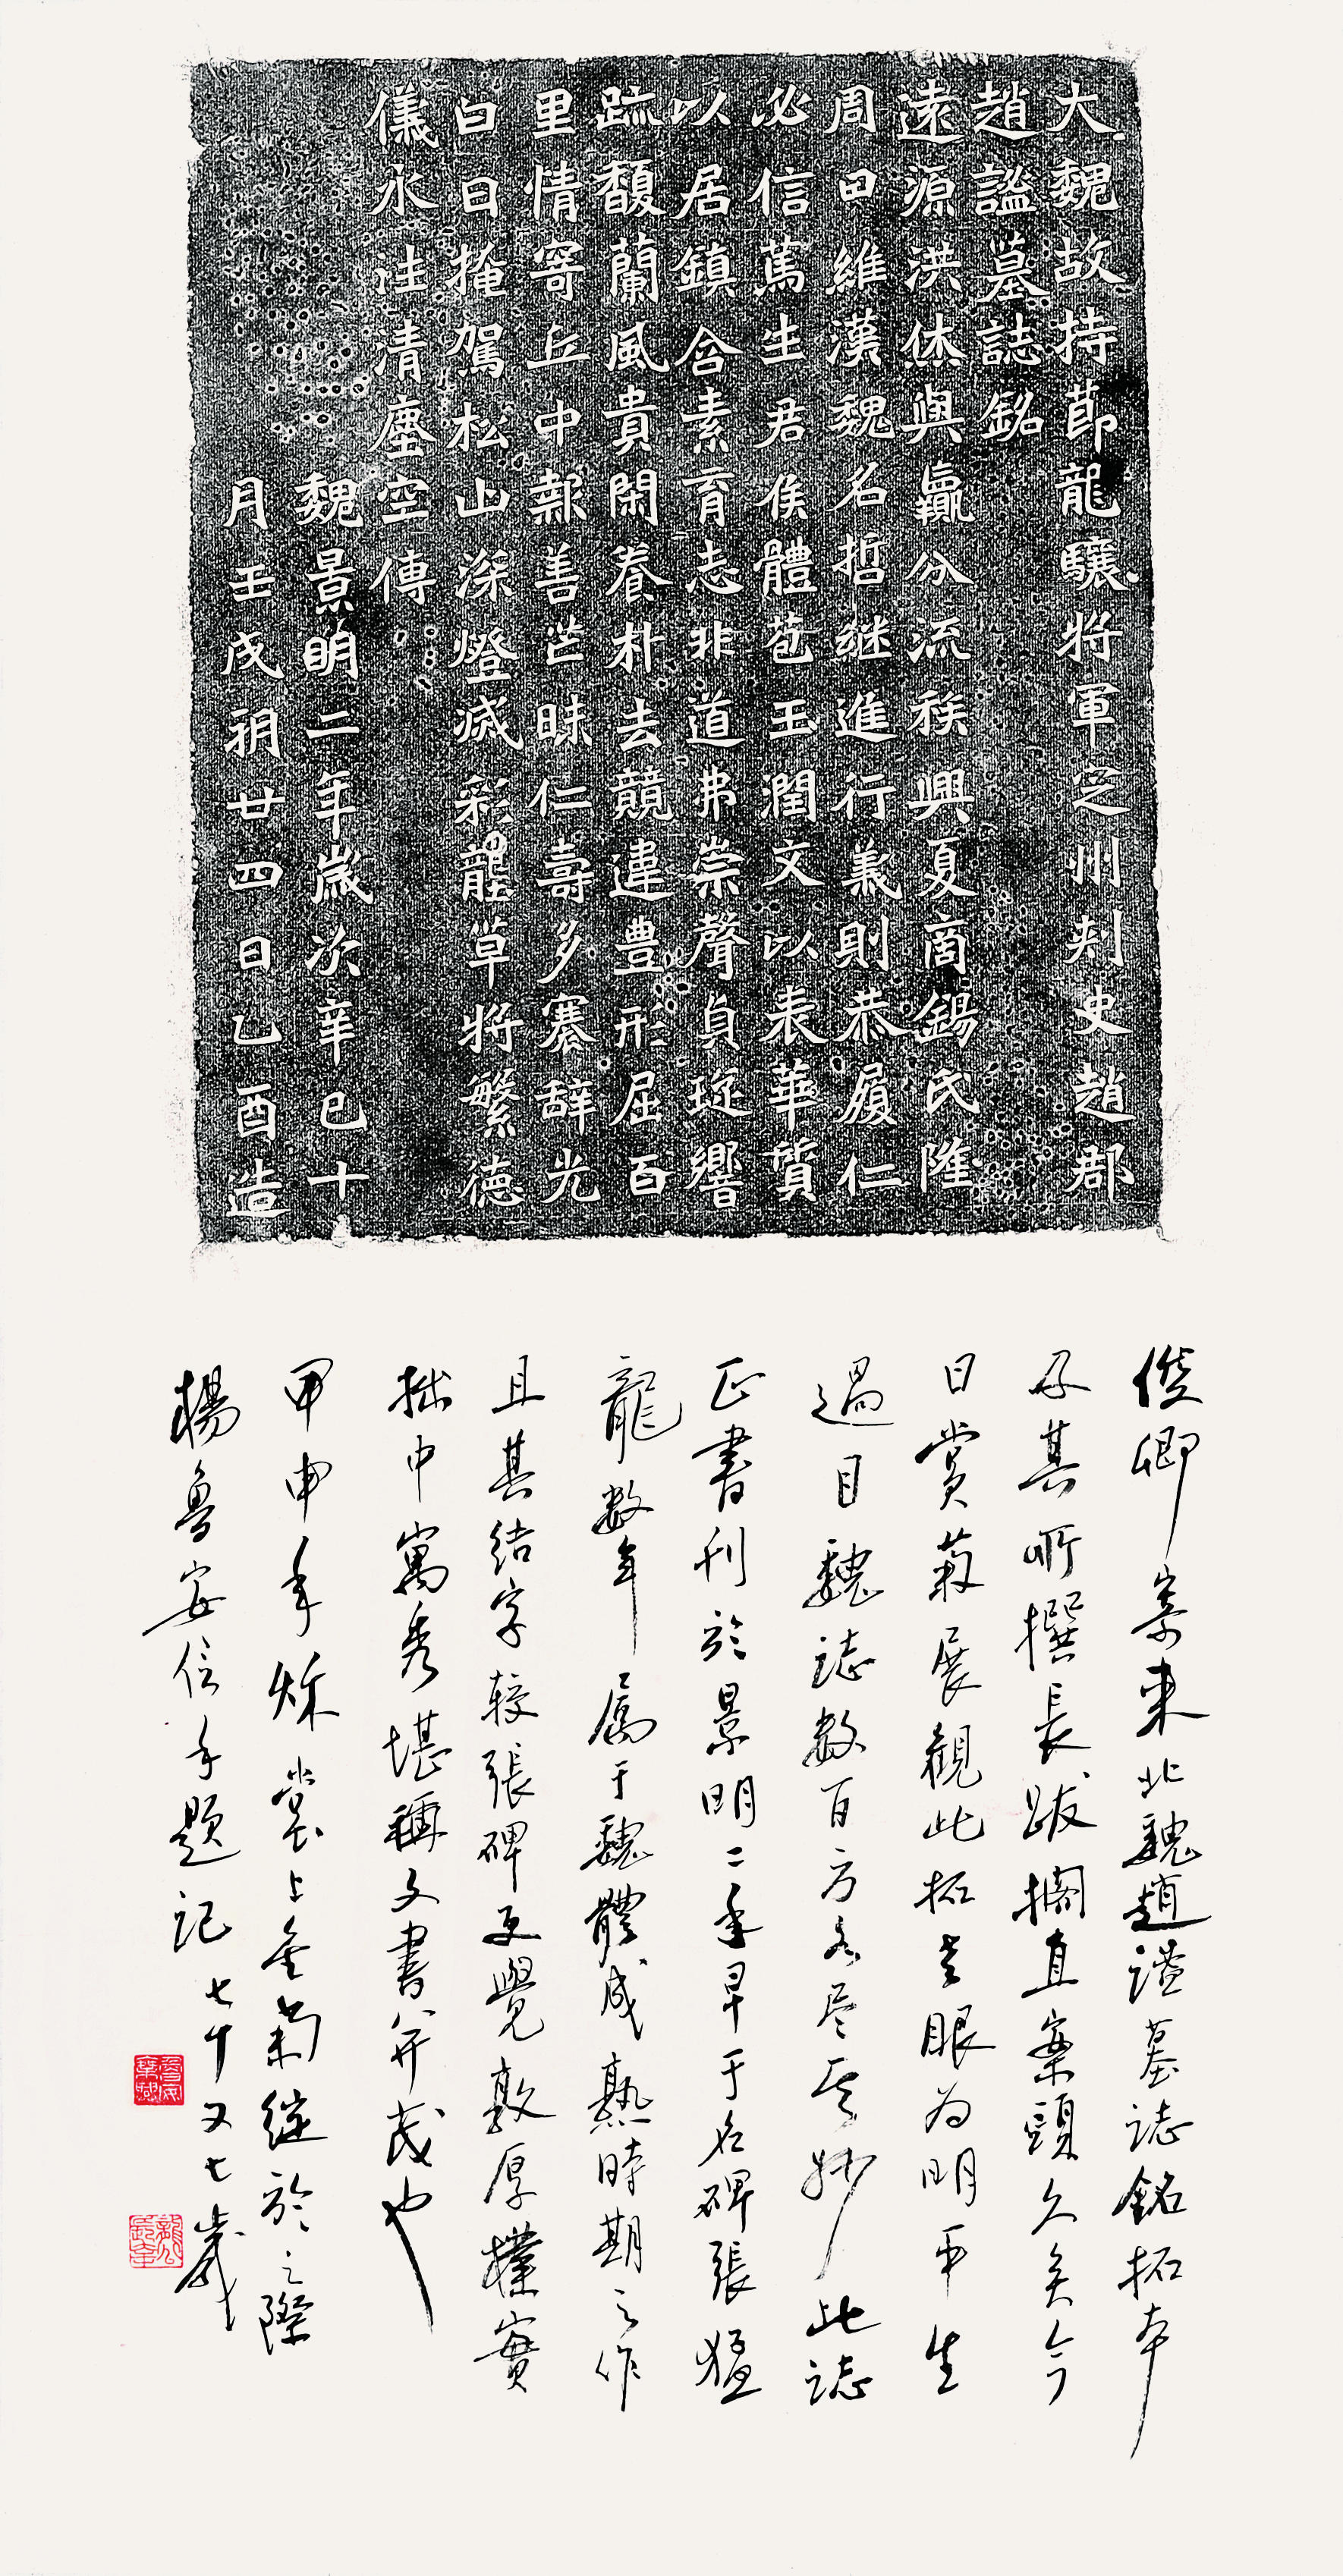 大魏故持節龍驤將軍㝎州刾史趙郡
趙謐墓誌銘
遠源洪休與羸分流族興夏商錫氏隆
周曰維漢魏名哲継進行義則恭履仁
必信篤生君侯體苞玉潤文以表華質
以居鎮含素育志非道弗崇聲貞琁響
跡馥蘭風貴閑養朴去競違豊形屈百
里情寄丘中報善芒昧仁壽多褰辞光
白日掩駕松山深燈滅彩壟草將繁德
儀永注清塵空傳
魏景明二年歲次辛巳十
月壬戌朔廿四日乙酉造
俊卿寄来北魏趙謐墓誌銘拓本
及其所撰長跋擱直案頭久矣今
日賞菊展觀此拓老眼为明平生
過目魏誌数百方各尽其妙此誌
正書刊於景明二年早于名碑張猛
龍数年属于魏體成熟時期之作
且其结字較張碑更覺敦厚樸實
拙中寓秀堪稱文書并茂也
甲申年秌裳上金菊绽放之際
楊魯安信手題記七十又七歲